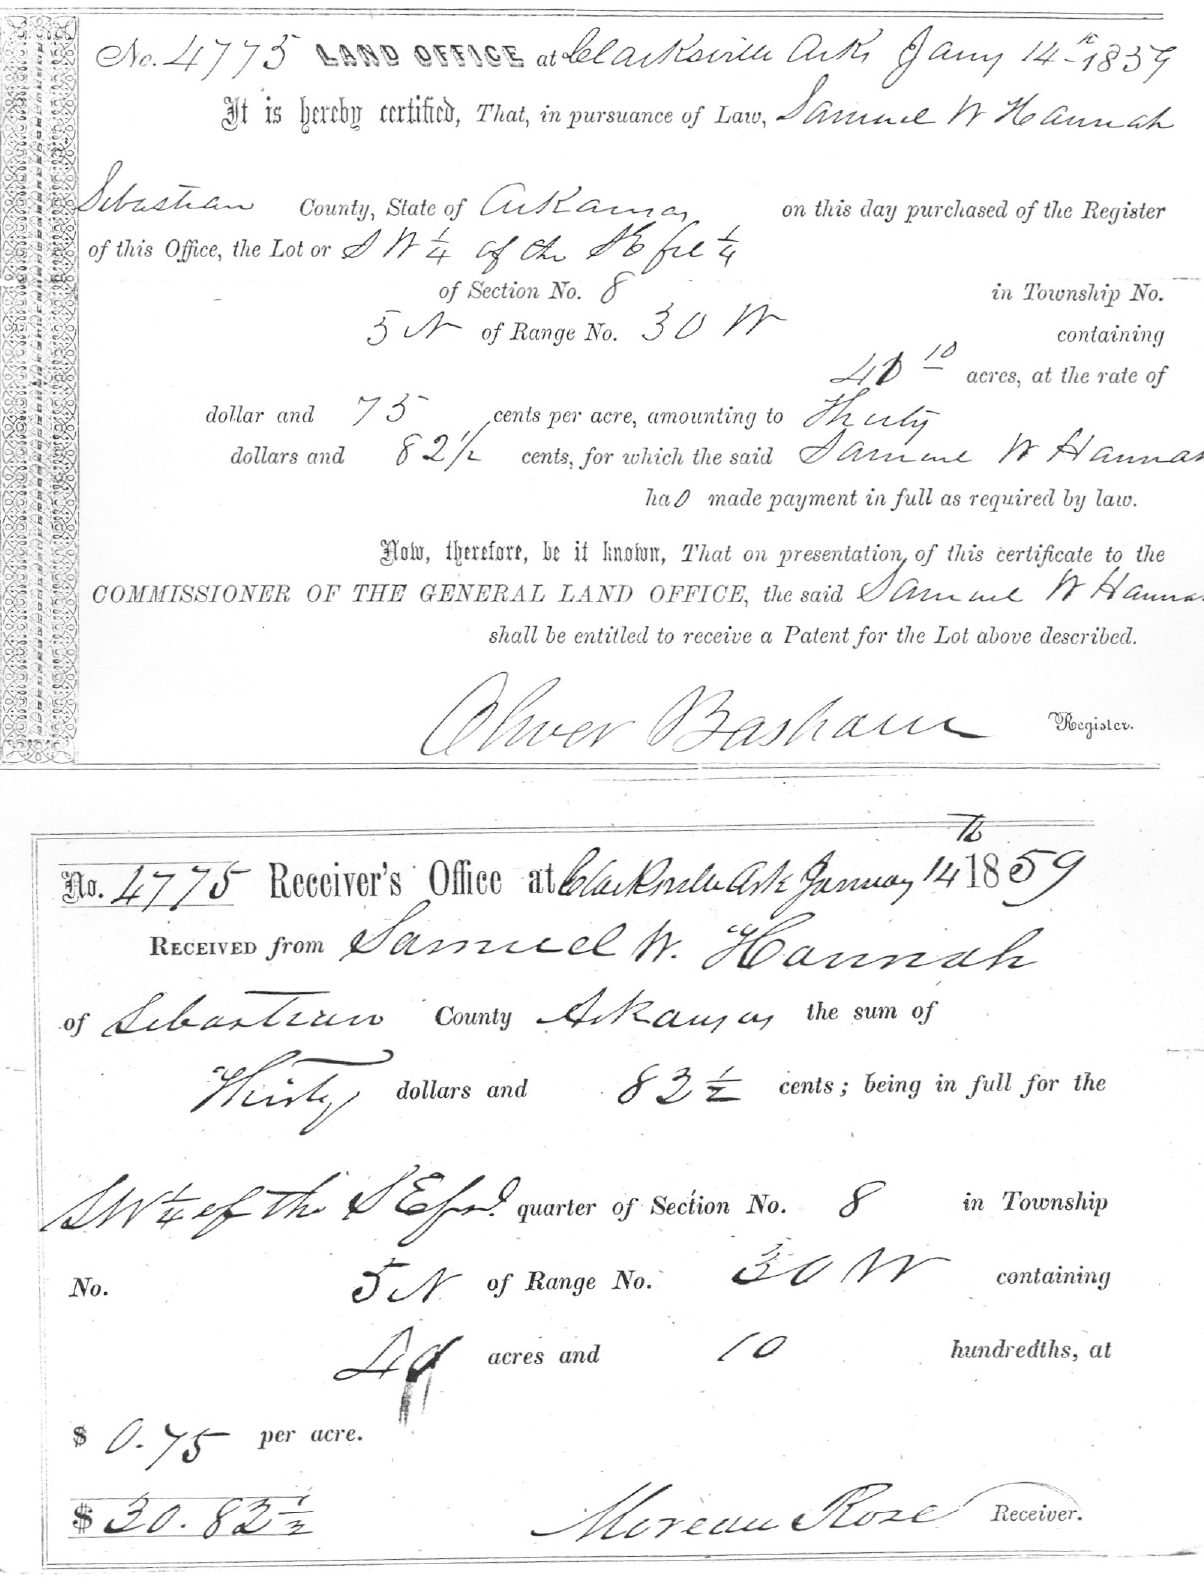 No. 4775 LAND OFFICE at Clarksville Arks Jany 14th 1859
It is hereby certified, That, in pursuance of Law, Samuel W Hannah
Sebastian County, State of Arkansas on this day purchased of the Register
of this Office, the Lot or S W ¼ of the S E frl ¼
of Section No. 8 in Township No.
5 N of Range No. 30 W containing
10 acres, at the rate of
dollar and 75 cents per acre, amounting to Thirty
dollars and 82½ cents, for which the said Samuel W Hannah
ha made payment in full as required by law.
Now, therefore, be it known, That on presentation of this certificate to the
COMMISSIONER OF THE GENERAL LAND OFFICE, the said Samuel W Hannah
shall be entitled to receive a Patent for the Lot above described.
Oliver Basham Register.
No. 4775 Receiver's Office at Clarksville Ark January 14 Th 1859
RECEIVED from Samuel W. Hannah
of Sebastian County Arkansas the sum of
Thirty dollars and 82 ½ cents; being in full for the
SW ¼ of the S E frl. quarter of Section No. 8 in Township
No. 5 N of Range No. 30 W containing
acres and 10 hundredths, at
$ 0.75 per acre.
$ 30.82 ½ Moreau Rose Receiver.